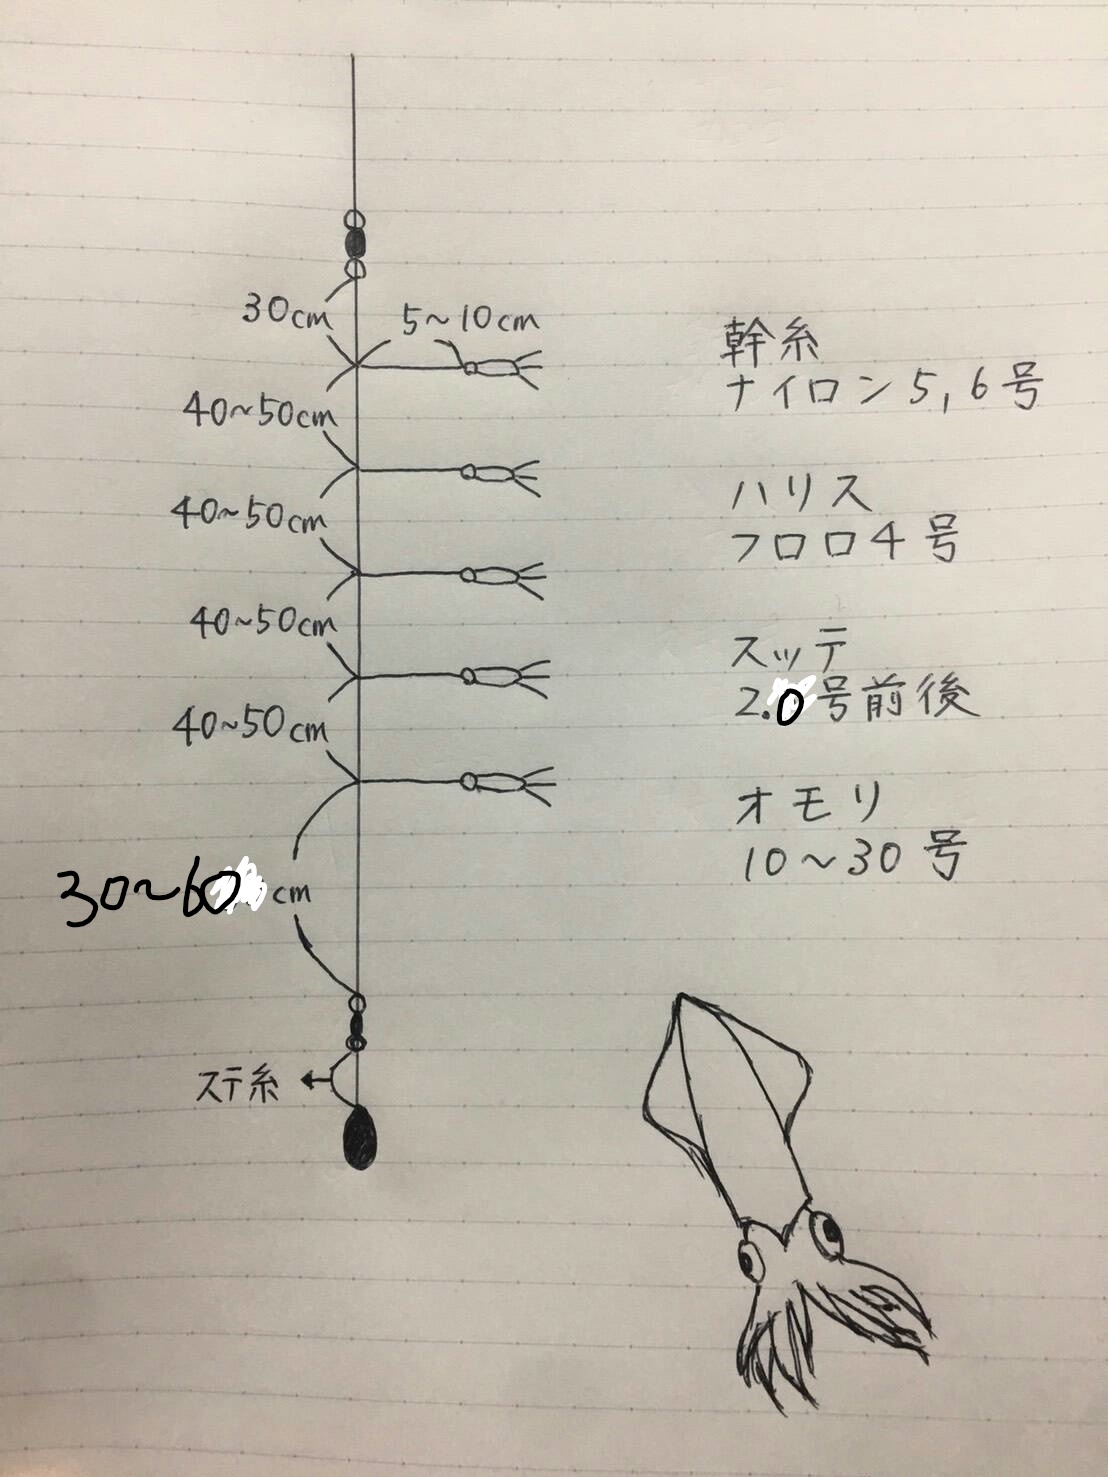 30cm
5~10cm
40~50cm
40~50cm
40~50cm
40~50cm
30~60cm
ステ糸
幹糸
ナイロン5,6号
ハリス
フロロ4号
スッテ
2.0号前後
オモリ
10~30号